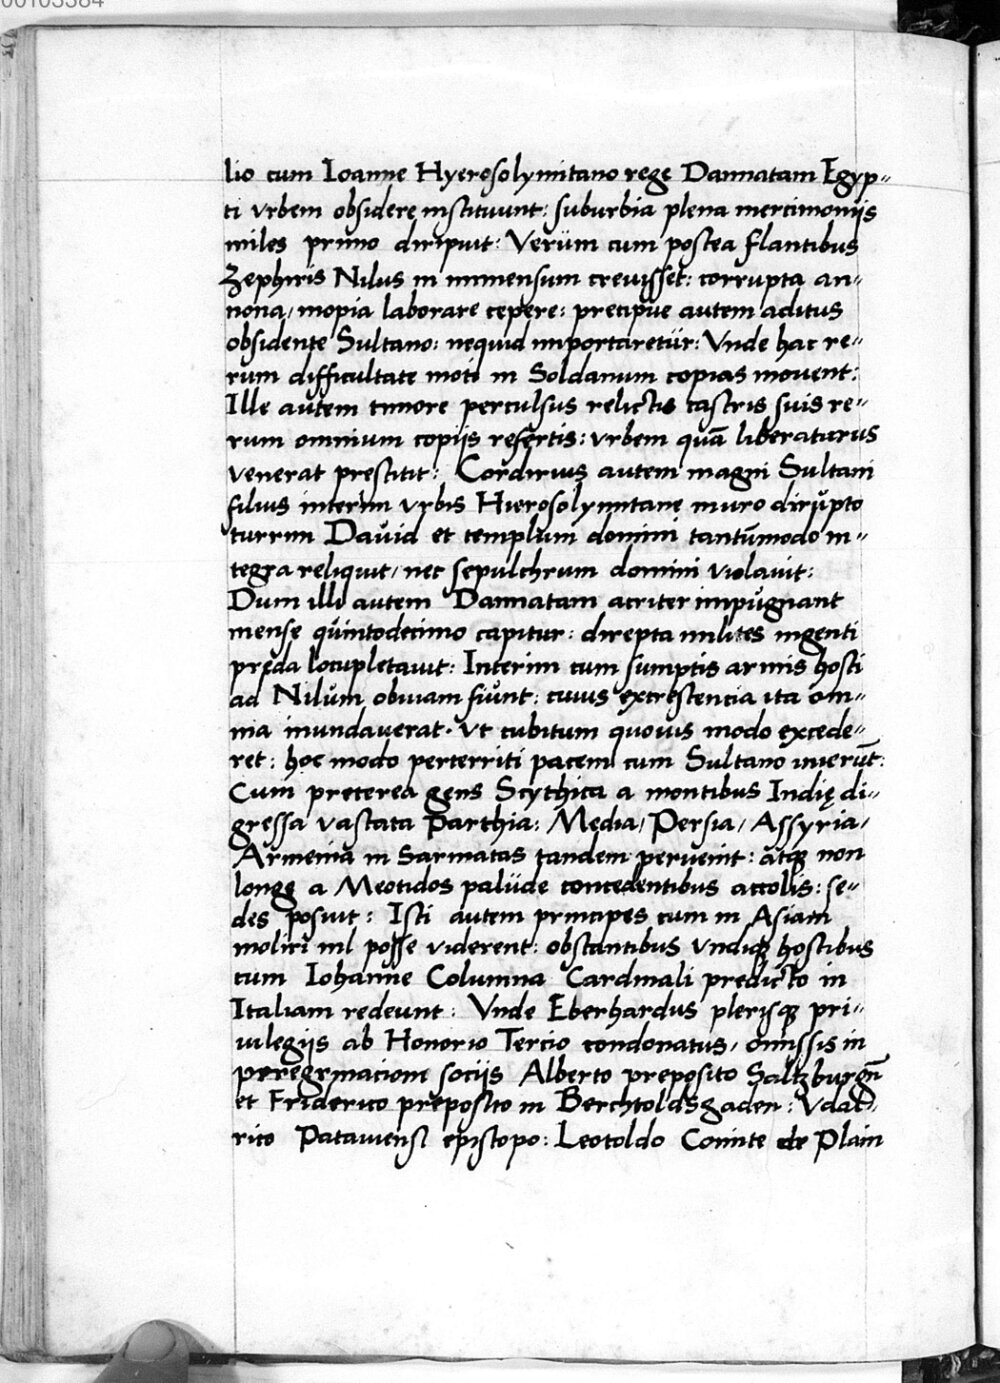 00103384
lio cum Ioanne Hyerosolymitano rege Damiatam Egyp-
ti vrbem obsidere instituunt: suburbia plena mercimoniis
miles primo diripuit: Verum cum postea flantibus
Zephiris Nilus in immensum creuisset: corrupta an-
nona, inopia laborare cepere: precipue autem aditus
obsidente Sultano: nequid importaretur: Vnde hac re-
rum difficultate moti in Soldanum copias mouent:
Ille autem timore perculsus relictis castris suis re-
rum omnium copijs refertis: vrbem quã liberaturus
venerat prestitit: Cordirius autem magni Sultani
filius interim vrbis Hierosolymitane muro dirupto
turrim Dauid et templum domini tantũmodo in-
tegra reliquit, nec sepulchrum domini violauit:
Dum illi autem Damiatam acriter impugnant
mense quintodecimo capitur: direpta milites ingenti
pręda locupletauit: Interim cum sumptis armis hosti
ad Nilum obuiam fiunt: cuius excrescencia ita om-
nia inundauerat. vt cubitum quouis modo excede-
ret: hoc modo perterriti pacem cum Sultano inierũt:
Cum preterea gens Scythica a montibus Indię di-
gressa vastata Parthia: Media, Persia, Assyria,
Armenia in Sarmatas tandem peruenit: atqꝫ non
longe a Meotidos palude concedentibus accolis: se-
des posuit: Isti autem principes cum in Asiam
moliri nil posse viderent: obstantibus vndiqꝫ hostibus
cum Iohanne Columna Cardinali predicto in
Italiam redeunt: Vnde Eberhardus plerisqꝫ pri-
uilegijs ab Honorio Tercio condonatus, omissis in
peregrinacione socijs Alberto preposito Saltzburgñ
et Friderico preposito in Berchtoldsgaden: Vdal-
rico Patauiensi episcopo: Leotoldo Comite de Plain